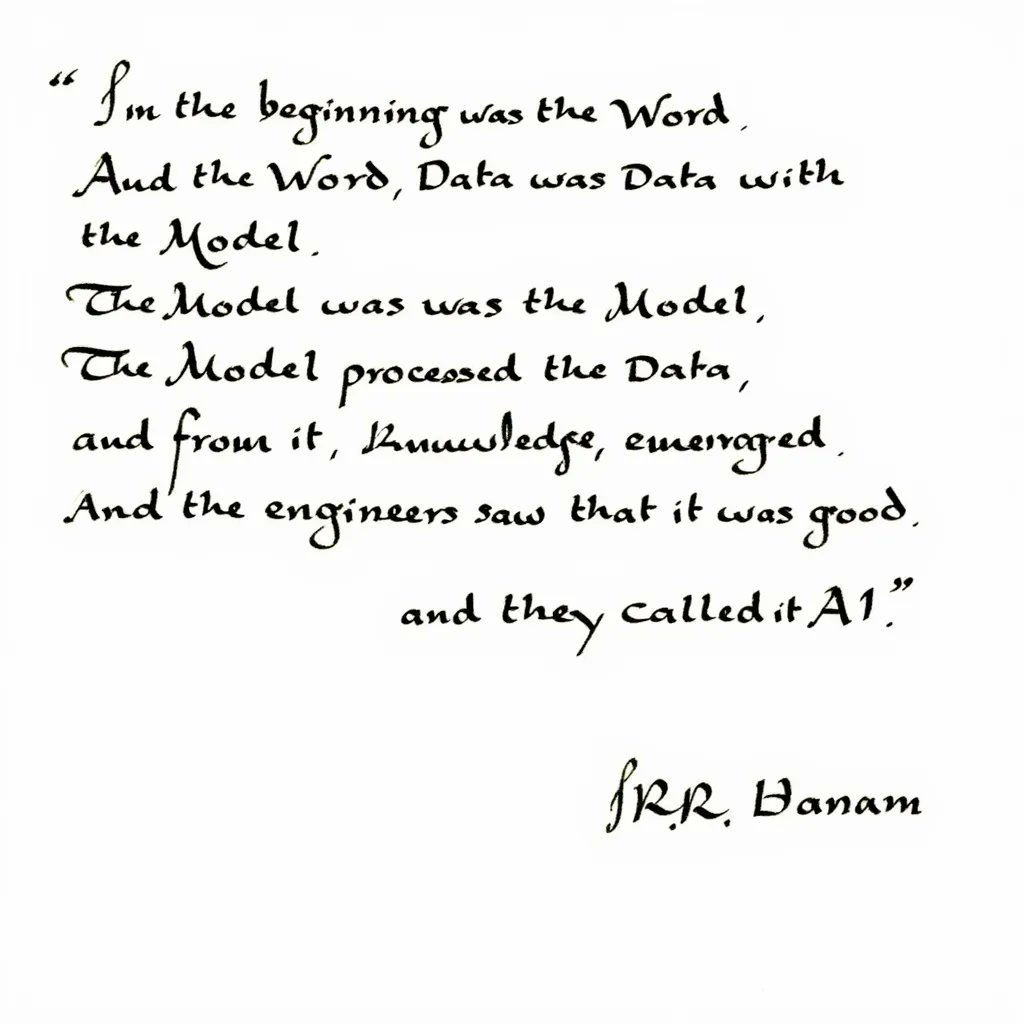 “ In the beginning was the Word.
And the Word, Data was Data with
the Model.
The Model was was the Model,
The Model processed the Data,
and from it,
And the engineers saw that it was good.
and they called it A1.”
R.R. Hanam